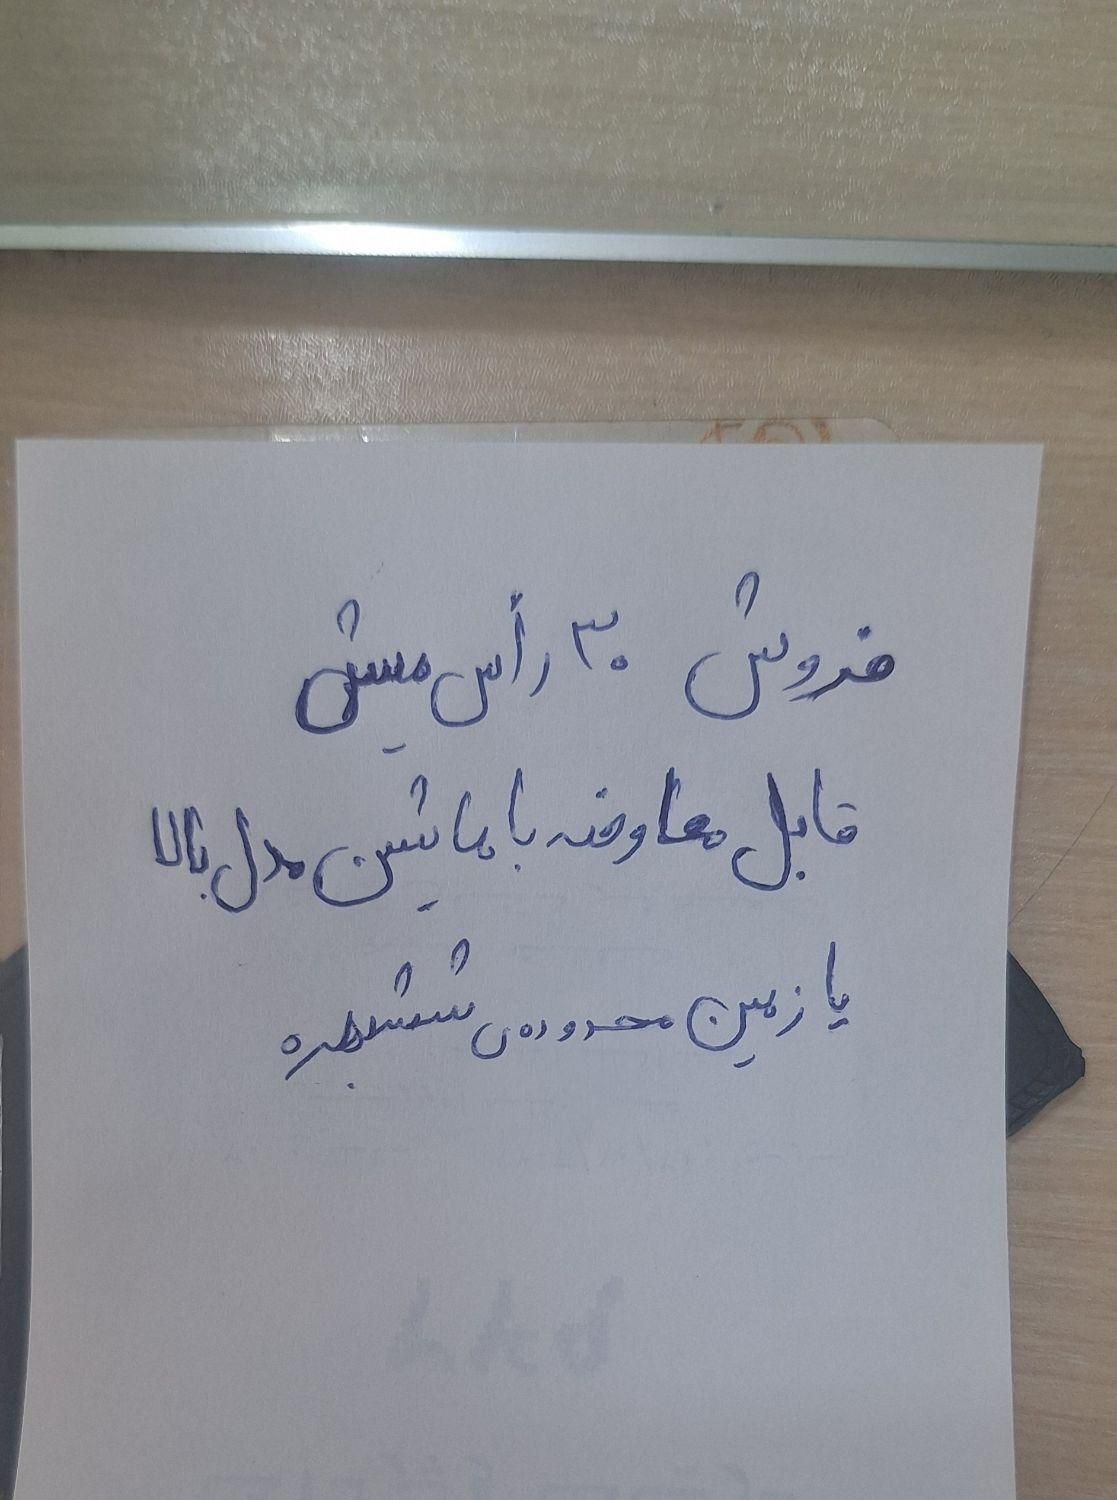 فروش ۳۰ رأس میش
قابل معاوضه با ماشین مدل بالا
یا زمین محدوده‌ی